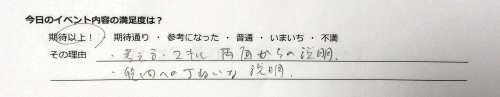 今日のイベント内容の満足度は?
期待以上! 期待通り ・ 参考になった ・ 普通 ・ いまいち ・ 不満
その理由 ・考え方・スキル 両面からの説明.
・質問への丁ねいな説明.